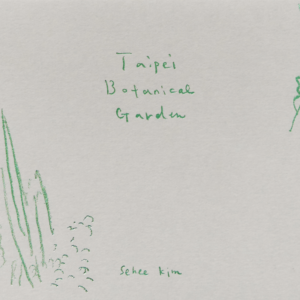 Taipei
Botanical
Garden
Sehee Kim